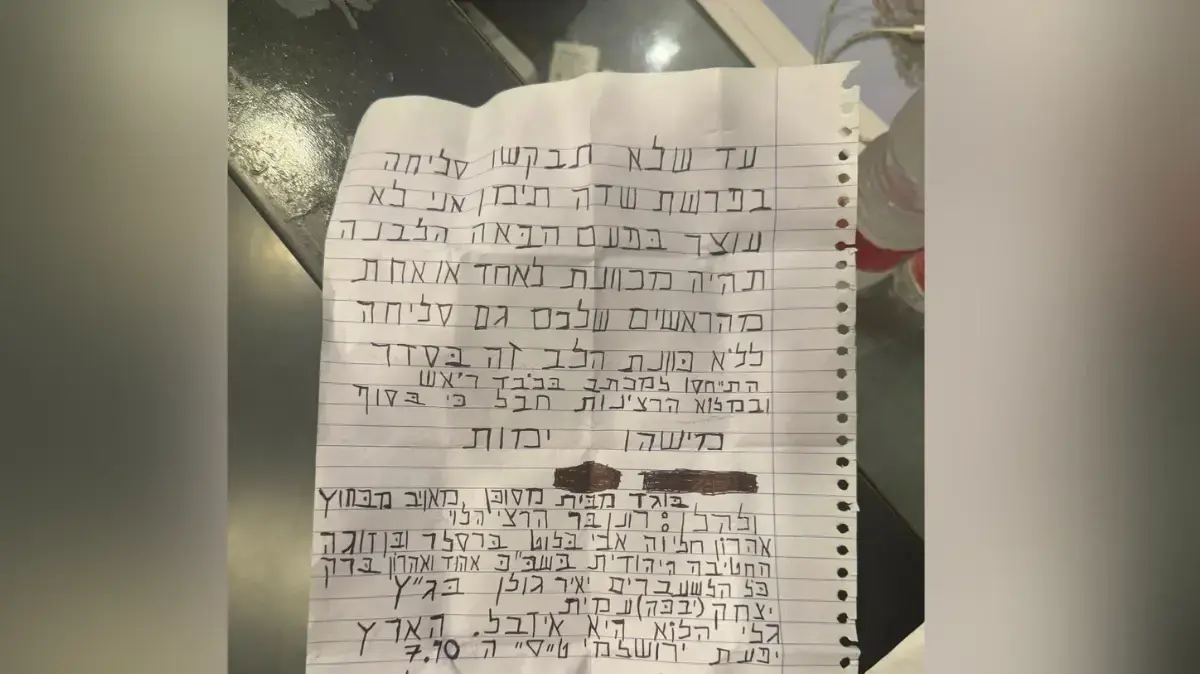 עד שלא תבקשו סליחה
בפרשת שדה תימן אני לא
עוצר בפעם הבאה הלבנה
תהיה מכוונת לאחד או אחת
מהראשים שלכם גם סליחה
ללא כוונת הלב זה בסדר
התייחסו למכתב בכובד ראש
ובמלוא הרצינות חבל כי בסוף
מישהו ימות
בוגד מבית מסוכן מאויב מבחוץ
ולהלן: רונן בר הרצי הלוי
אהרון חליוה אבי בלוט ברסלר ובן זוגה
החטיבה היהודית בשב״כ אהוד ואהרון ברק
כל הלשעברים יאיר גולן בג״ץ
יצחק (יבבה) עמית
גלי הלוא היא איזבל. הארץ
יפעת ירושלמי ה 7.10